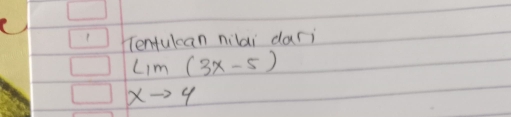 Tentukan nilai dari
Lim (3x-5)
x → 4